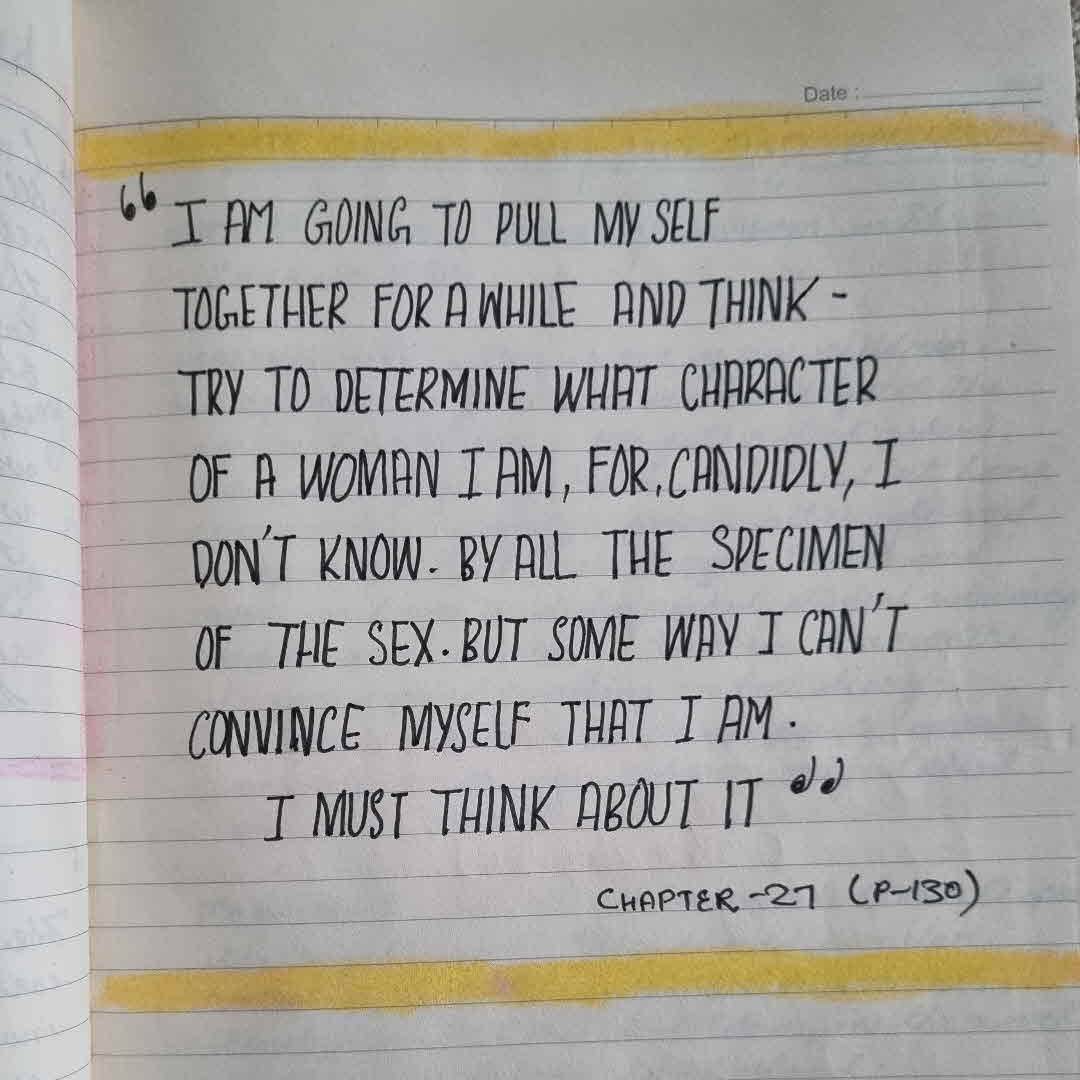 Date :
“ I AM GOING TO PULL MY SELF
TOGETHER FOR A WHILE AND THINK -
TRY TO DETERMINE WHAT CHARACTER
OF A WOMAN I AM, FOR, CANDIDLY, I
DON'T KNOW. BY ALL THE SPECIMEN
OF THE SEX. BUT SOME WAY I CAN'T
CONVINCE MYSELF THAT I AM.
I MUST THINK ABOUT IT ”
CHAPTER -27 (P-130)